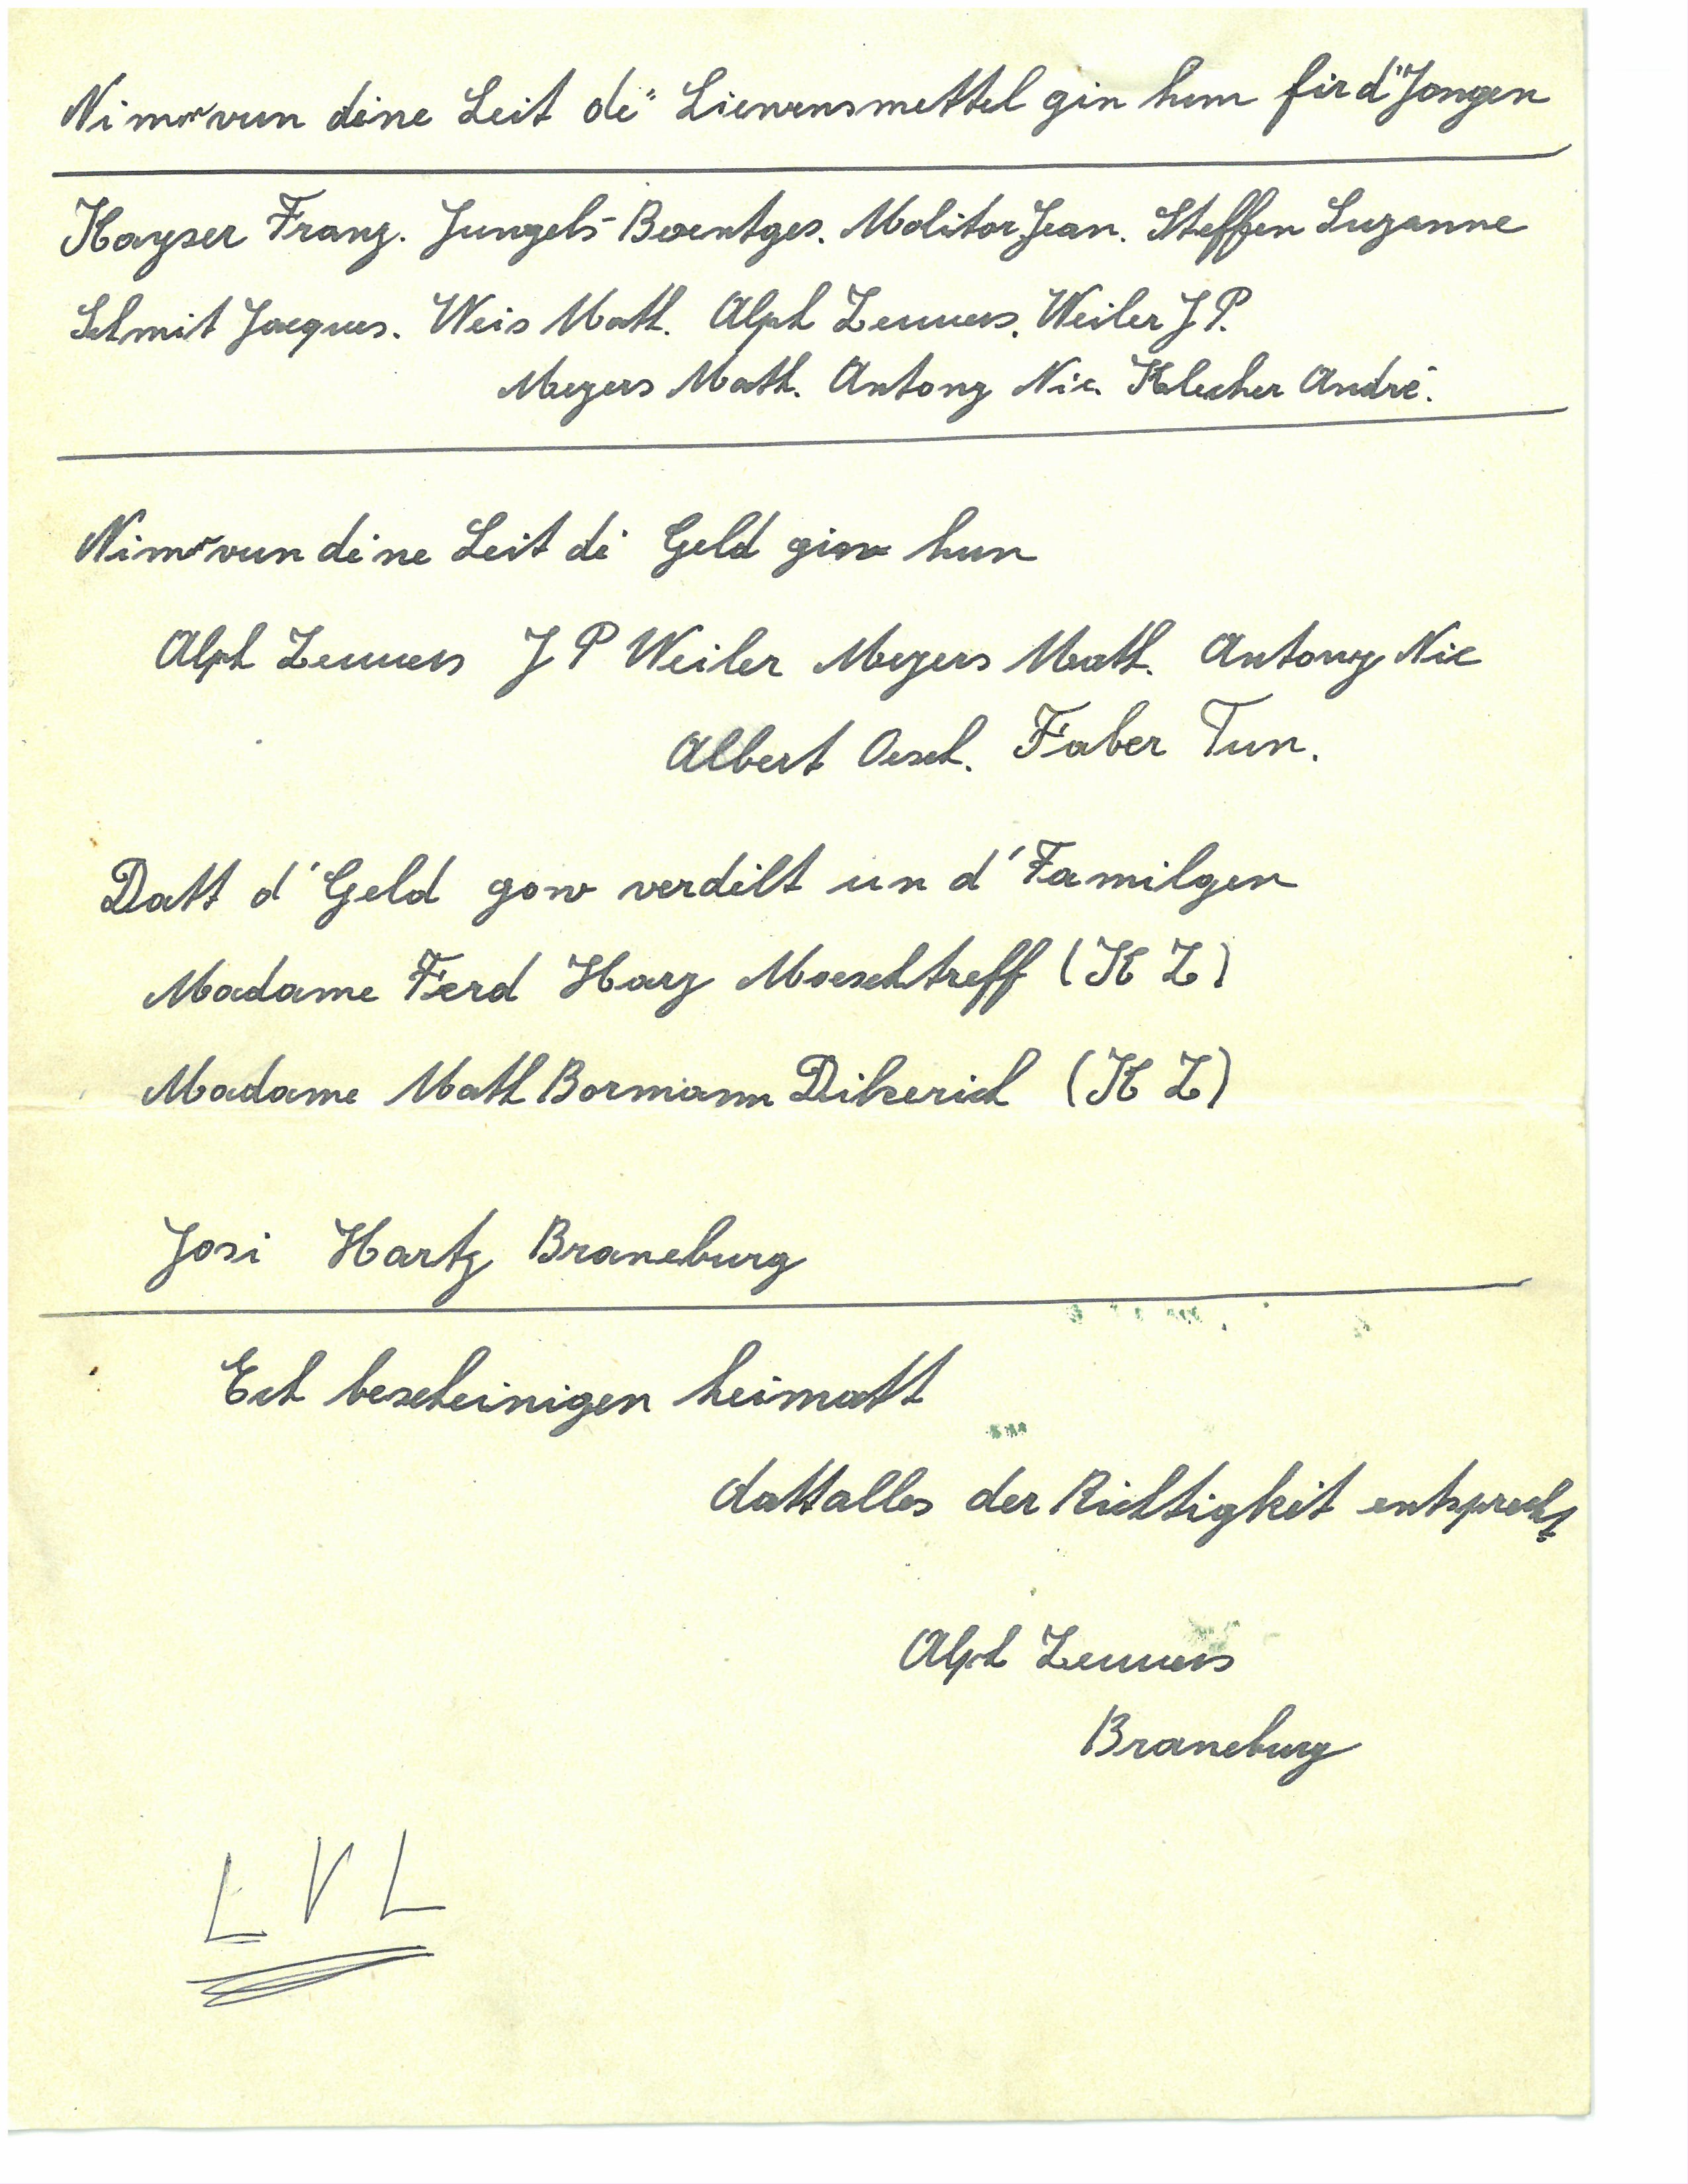 Nimm vun déne Leit dé Liewensmettel gin hun fir d'Jongen
Kayser Franz. Jungels-Boentges. Molitor Jean. Steffen Suzanne
Schmit Jacques. Weis Math. Alph Zeuners. Weiler J P.
Meyers Math. Antony Nic. Klecher André.
Nimm vun déne Leit dé Geld gin hun
Alph Zeuners J P Weiler Meyers Math. Antony Nic
Albert Oesch. Faber Tun.
Datt d'Geld gow verdélt un d'Familgen
Madame Ferd Harz Moeschtreff (K Z)
Madame Math Bormann Dikerich (K Z)
Josi Hartz Braneburg
Ech bescheinigen heimatt
datt alles der Richtigkeit entsprecht
Alph Zeuners
Braneburg
L V L